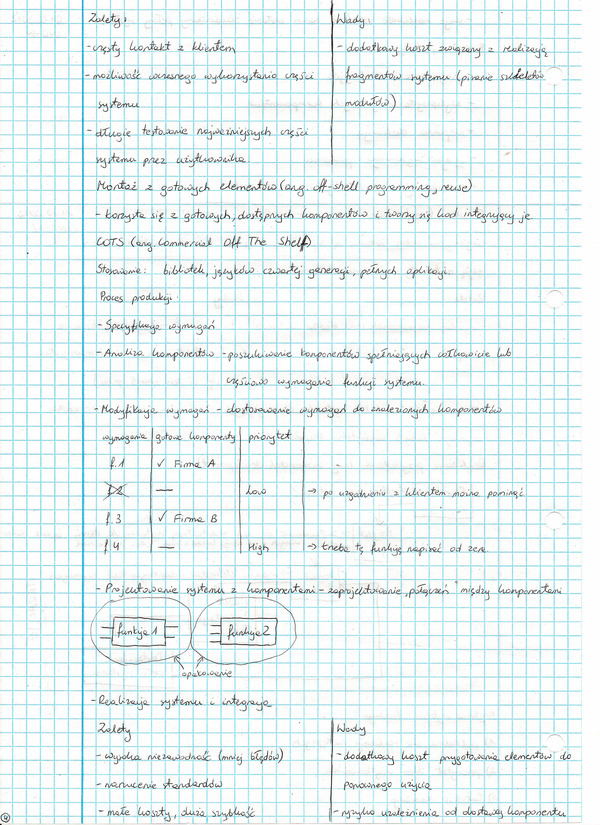 Zalety:
- częsty kontakt z klientem
- możliwość wczesnego wykorzystania części
systemu
- długie testowanie najważniejszych części
systemu przez użytkownika
Wady:
- dodatkowy koszt związany z realizacją
fragmentów systemu (pisanie szkieletów
modułów)
Montaż z gotowych elementów (ang. off-shell programming, reuse)
- korzysta się z gotowych, dostępnych komponentów i tworzy się kod integrujący je
COTS (ang. Commercial Off The Shelf)
Stosowanie: bibliotek, języków czwartej generacji, pełnych aplikacji
Proces produkcji:
- Specyfikacja wymagań
- Analiza komponentów - poszukiwanie komponentów spełniających całkowicie lub
częściowo wymagania funkcji systemu.
- Modyfikacja wymagań - dostosowanie wymagań do znalezionych komponentów
wymagania gotowe komponenty priorytet
f.1 ✓ Firma A -
f.2 — Low → po uzgodnieniu z klientem można pominąć
f.3 ✓ Firma B
f.4 — High → trzeba tę funkcję napisać od zera
- Projektowanie systemu z komponentami - zaprojektowanie „połączeń" między komponentami
funkcja 1 funkcja 2
opakowanie
- Realizacja systemu i integracja
Zalety
- wysoka niezawodność (mniej błędów)
- narzucenie standardów
- małe koszty, duża szybkość
Wady
- dodatkowy koszt przygotowania elementów do
ponownego użycia
- ryzyko uzależnienia od dostawcy komponentu
4